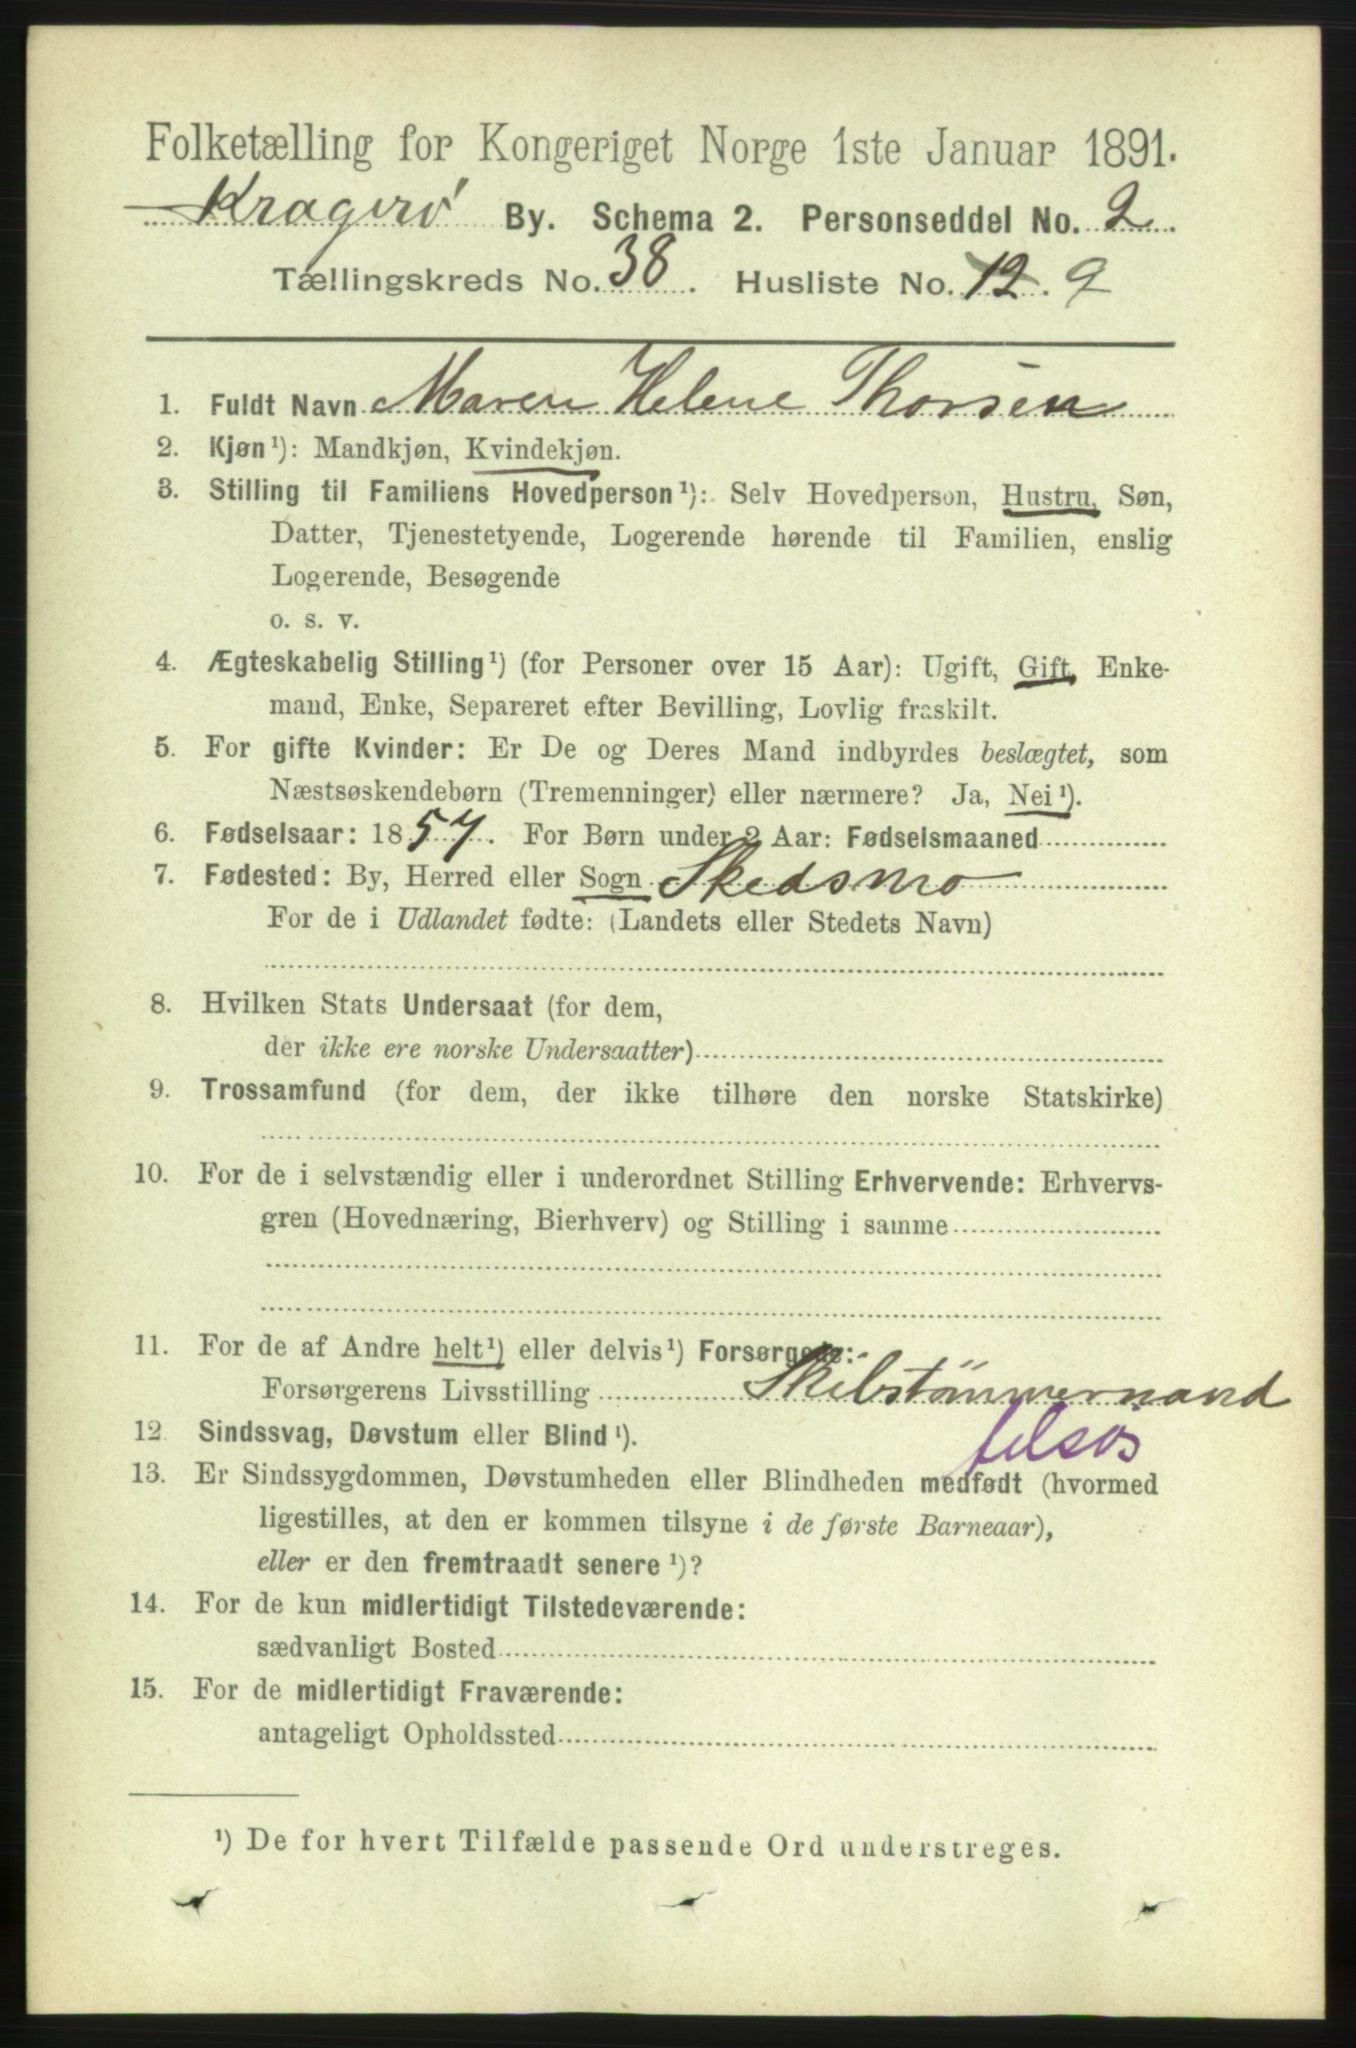 Folketælling for Kongeriget Norge 1ste Januar 1891.
Kragerø By. Schema 2. Personseddel No. 2
Tællingskreds No. 38. Husliste No. 12. 9
1. Fuldt Navn Maren Helene Thorsen
2. Kjøn¹): Mandkjøn, Kvindekjøn.
3. Stilling til Familiens Hovedperson¹): Selv Hovedperson, Hustru, Søn,
Datter, Tjenestetyende, Logerende hørende til Familien, enslig
Logerende, Besøgende
o. s. v.
4. Ægteskabelig Stilling¹) (for Personer over 15 Aar): Ugift, Gift, Enke-
mand, Enke, Separeret efter Bevilling, Lovlig fraskilt.
5. For gifte Kvinder: Er De og Deres Mand indbyrdes beslægtet, som
Næstsøskendebørn (Tremenninger) eller nærmere? Ja, Nei¹).
6. Fødselsaar: 1857. For Børn under 2 Aar: Fødselsmaaned
7. Fødested: By, Herred eller Sogn Skedsmo
For de i Udlandet fødte: (Landets eller Stedets Navn)
8. Hvilken Stats Undersaat (for dem,
der ikke ere norske Undersaatter)
9. Trossamfund (for dem, der ikke tilhøre den norske Statskirke)
10. For de i selvstændig eller i underordnet Stilling Erhvervende: Erhvervs-
gren (Hovednæring, Bierhverv) og Stilling i samme
11. For de af Andre helt¹) eller delvis¹) Forsørgede:
Forsørgerens Livsstilling Skibstømmermand
12 Sindssvag, Døvstum eller Blind¹).
13. Er Sindssygdommen, Døvstumheden eller Blindheden medfødt (hvormed
ligestilles, at den er kommen tilsyne i de første Barneaar),
eller er den fremtraadt senere¹)?
14. For de kun midlertidigt Tilstedeværende:
sædvanligt Bosted
15. For de midlertidigt Fraværende:
antageligt Opholdssted
¹) De for hvert Tilfælde passende Ord understreges.